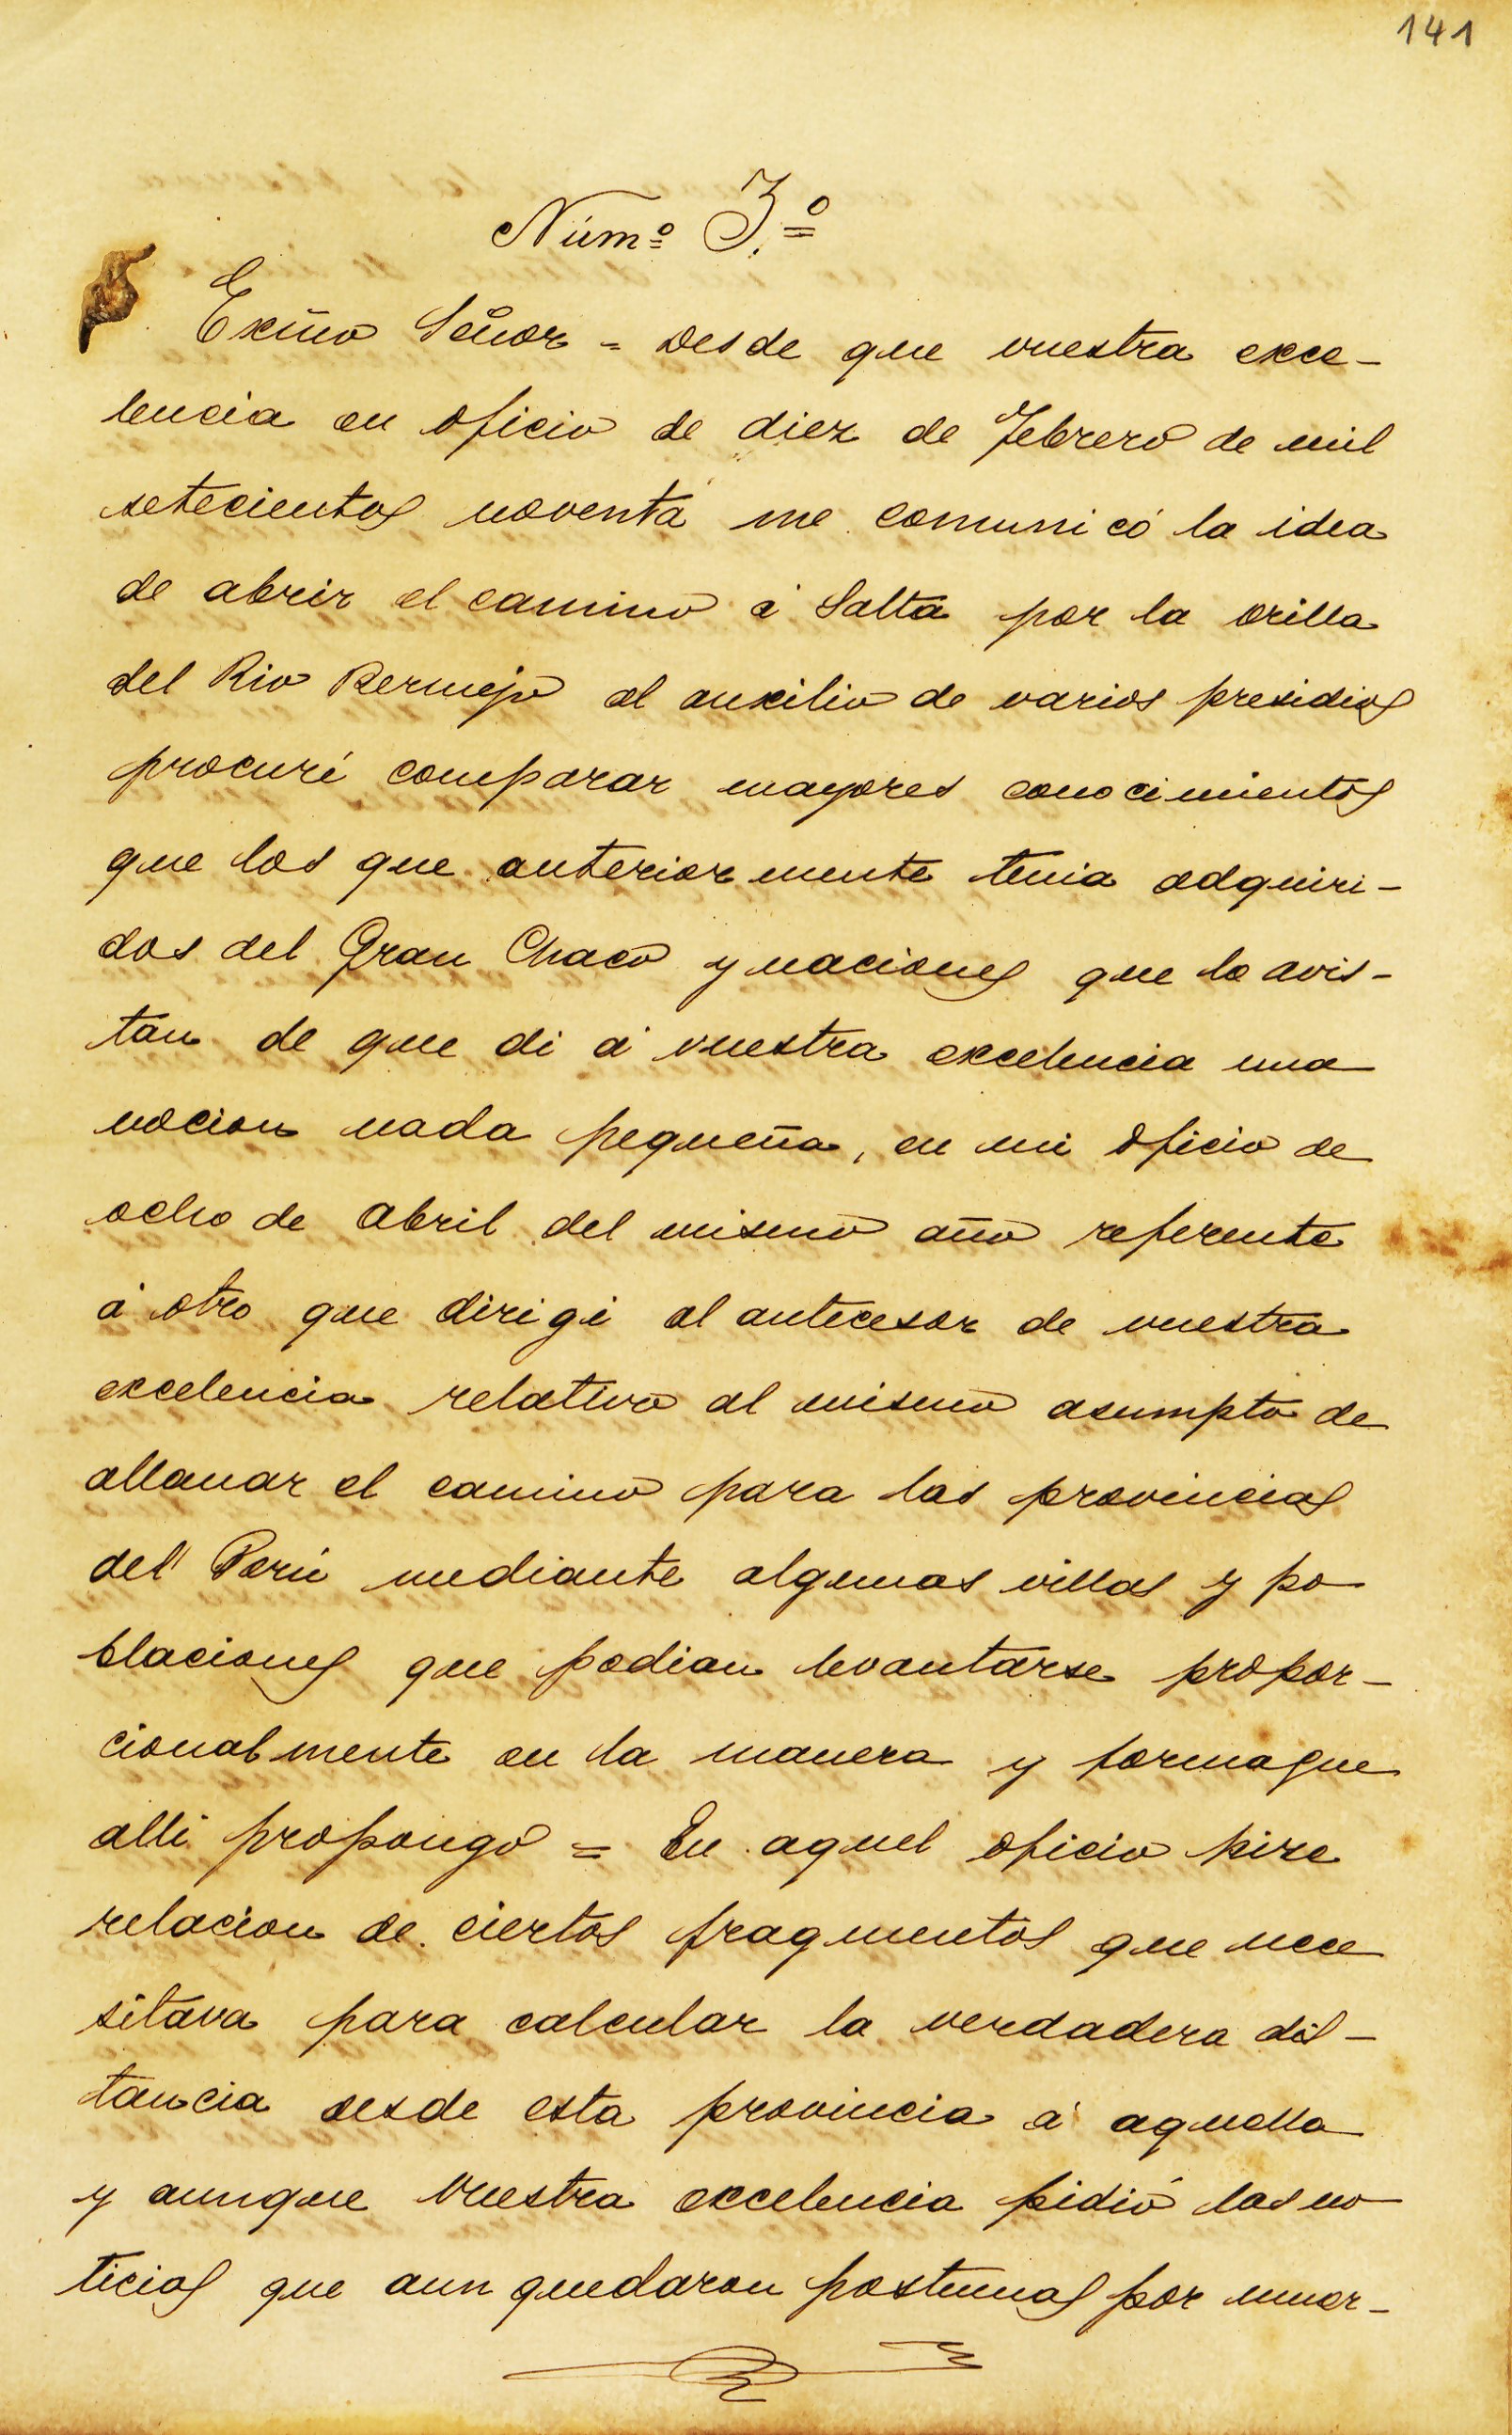 141
Núm.º 3.º
Exmo Señor = Desde que vuestra exce-
lencia en oficio de diez de Febrero de mil
setecientos noventa me comunicó la idea
de abrir el camino á Salta por la orilla
del Rio Bermejo al auxilio de varios presidios
procuré comparar mayores conocimientos
que los que anteriormente tenia adquiri-
dos del Gran Chaco y naciones que lo avis-
tan de que di á vuestra excelencia una
nocion nada pequeña, en mi oficio de
ocho de Abril del mismo año referente
á otro que dirigi al antecesor de vuestra
excelencia relativo al mismo asumpto de
allanar el camino para las provincias
del Perú mediante algunas villas y po
blaciones que podian levantarse propor-
cionalmente en la manera y forma que
alli propongo = En aquel oficio hize
relacion de ciertos fragmentos que nece
sitava para calcular la verdadera dis-
tancia desde esta provincia á aquella
y aunque vuestra excelencia pidió las no
ticias que aun quedaron postumas por muer-